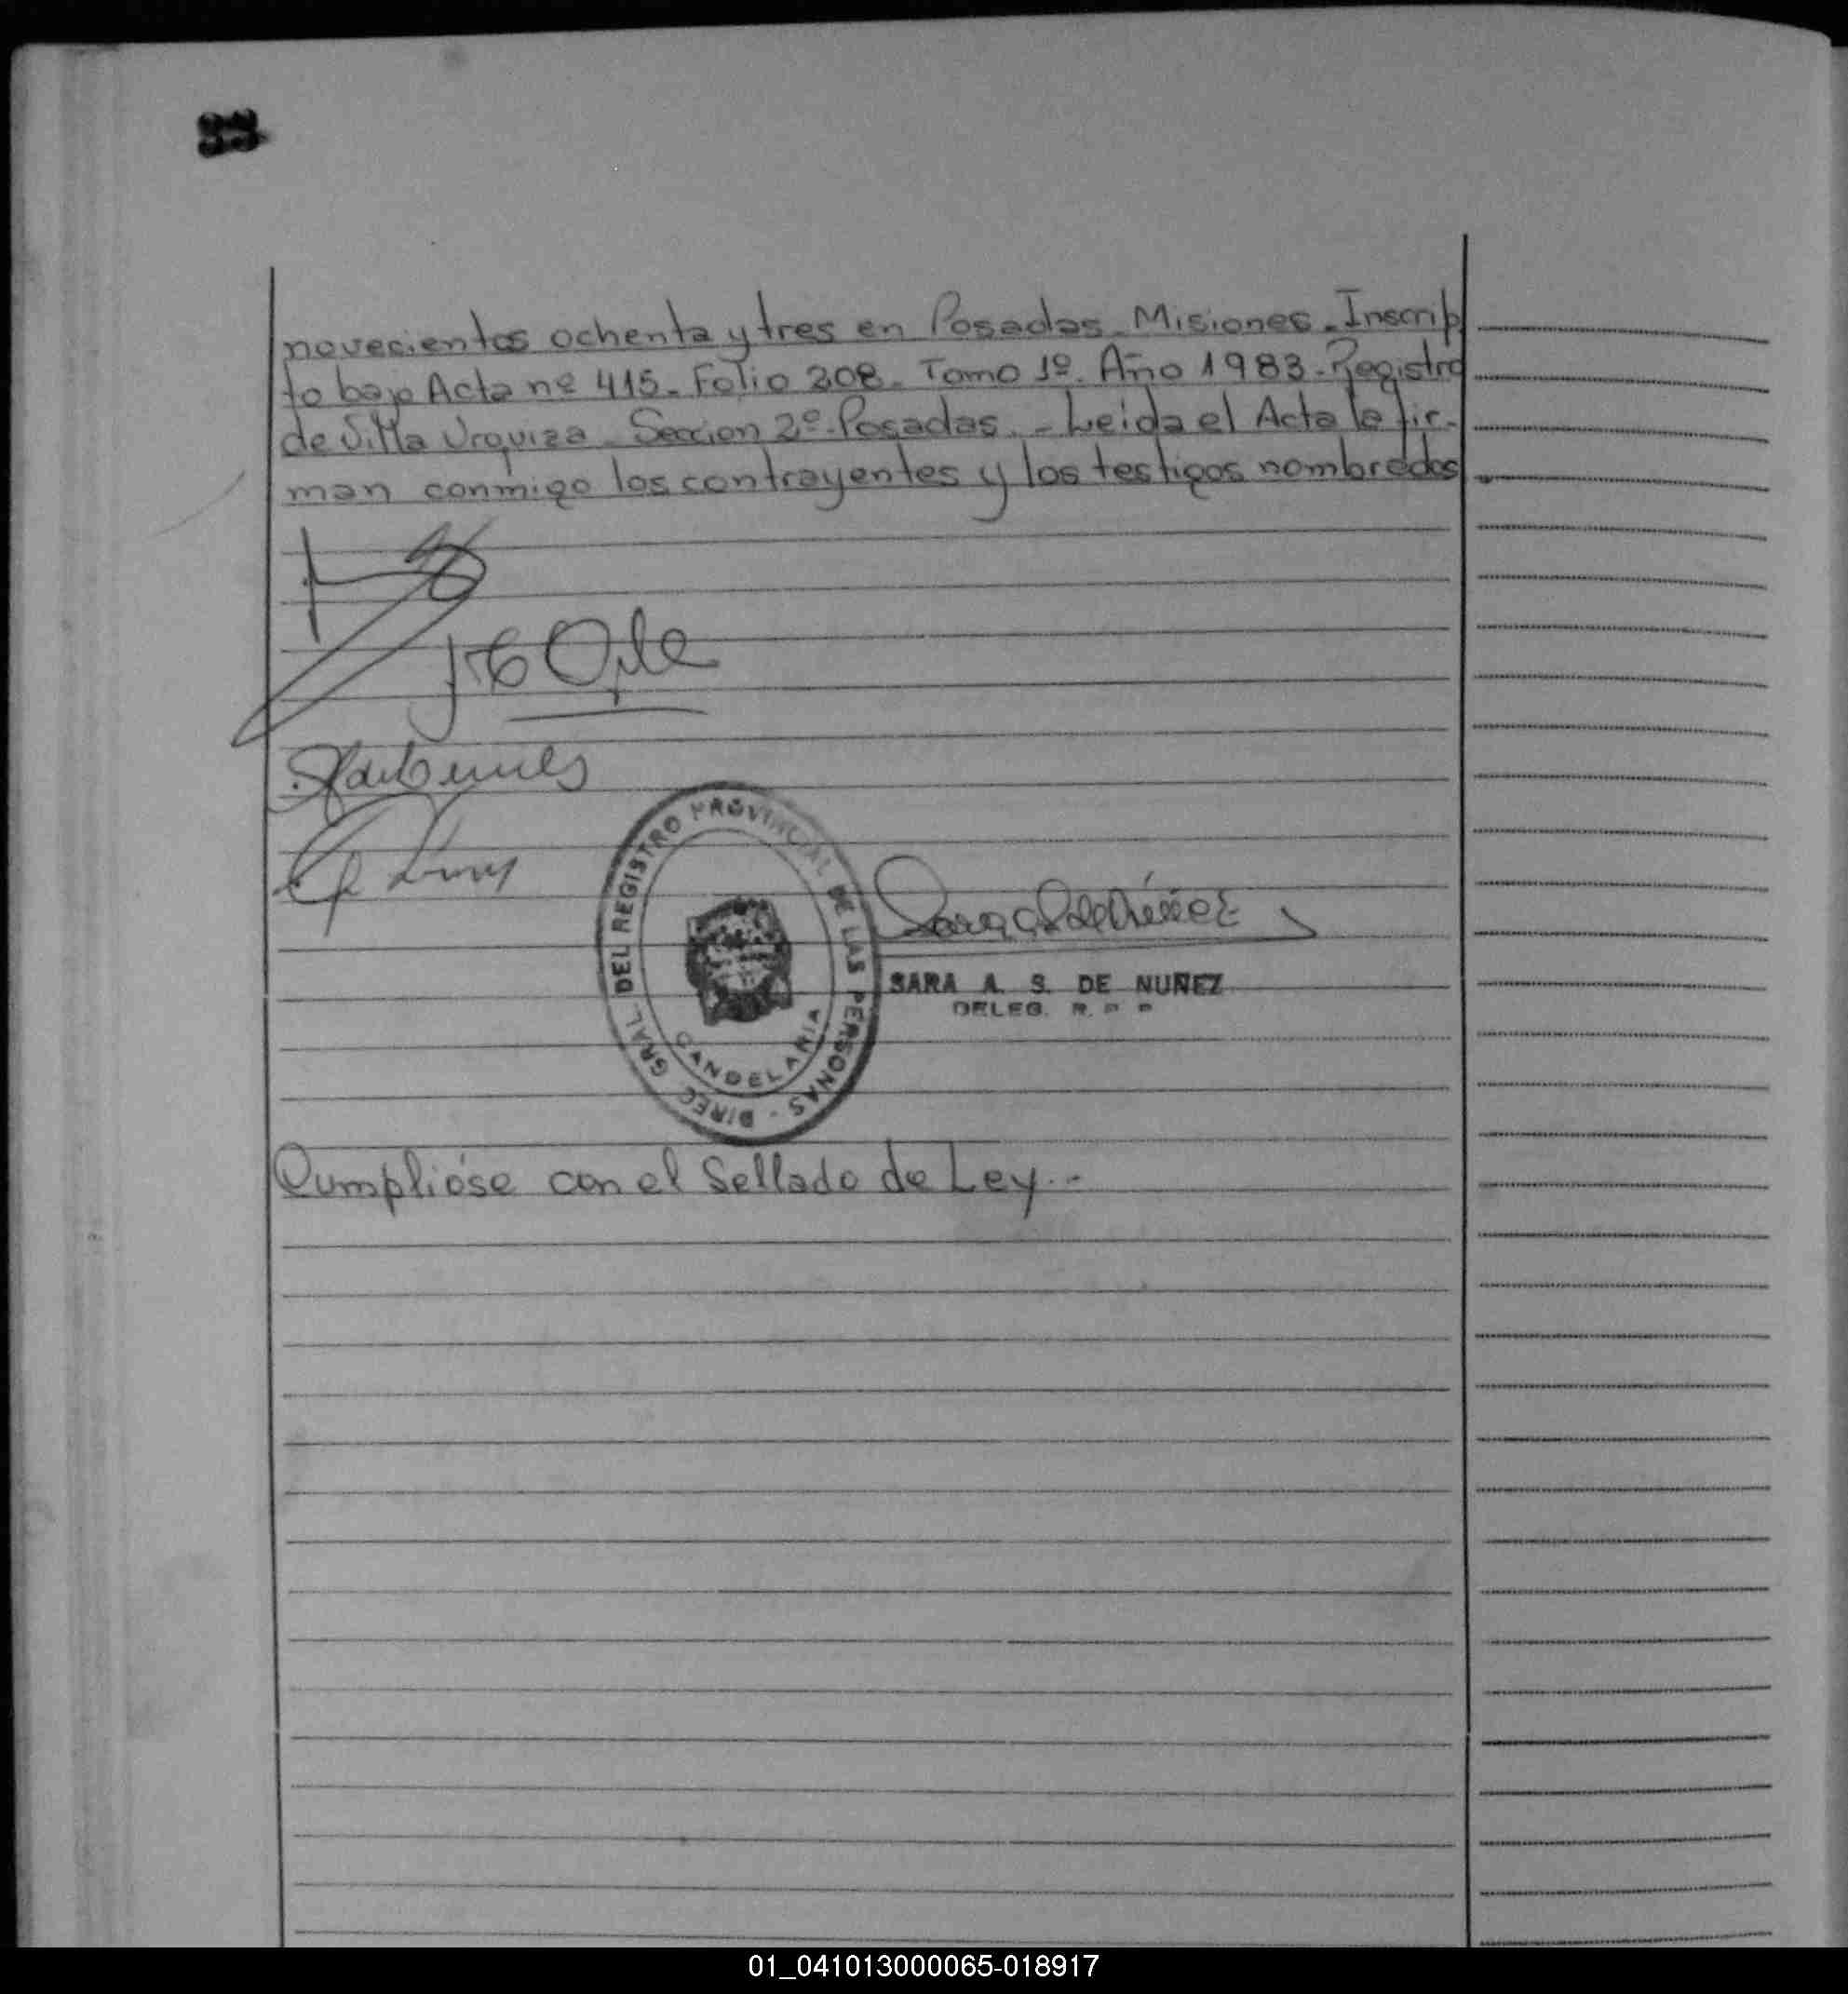 33
novecientos ochenta y tres en Posadas - Misiones - Inscrip
to bajo Acta nº 415 - Folio 208 - Tomo 1º - Año 1983 - Registro
de Villa Urquiza - Seccion 2º - Posadas. - Leida el Acta la fir-
man conmigo los contrayentes y los testigos nombrados
DIREC GRAL DEL REGISTRO PROVINCIAL DE LAS PERSONAS -
CANDELARIA
SARA A. S. DE NUÑEZ
DELEG. R. P. P
Cumplióse con el Sellado de Ley. -
01_041013000065-018917